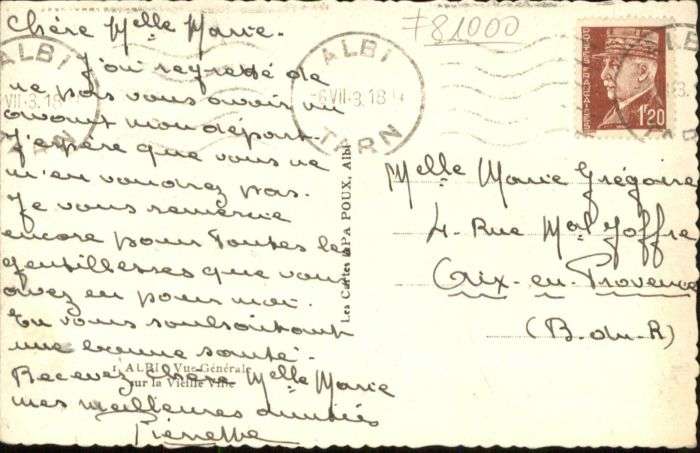 Chère Melle Marie.
J'ai regretté de
ne pas vous avoir vu
avant mon départ.
J'espère que vous ne
m'en voudrez pas.
Je vous remercie
encore pour toutes les
gentillesses que vous
avez eu pour moi.
En vous souhaitant
une bonne santé.
Recevez chère Melle Marie
mes meilleures amitiés
Pierrette
1. ALBI Vue Générale
sur la Vieille Ville
Les Cartes APA POUX, Albi
F81000
ALBI
VII-3.18
TARN
ALBI
6 VII-3.18
TARN
1F20
Melle Marie Grégoire
4. Rue Mal Joffre
Aix-en-Provence
(B.du.R)